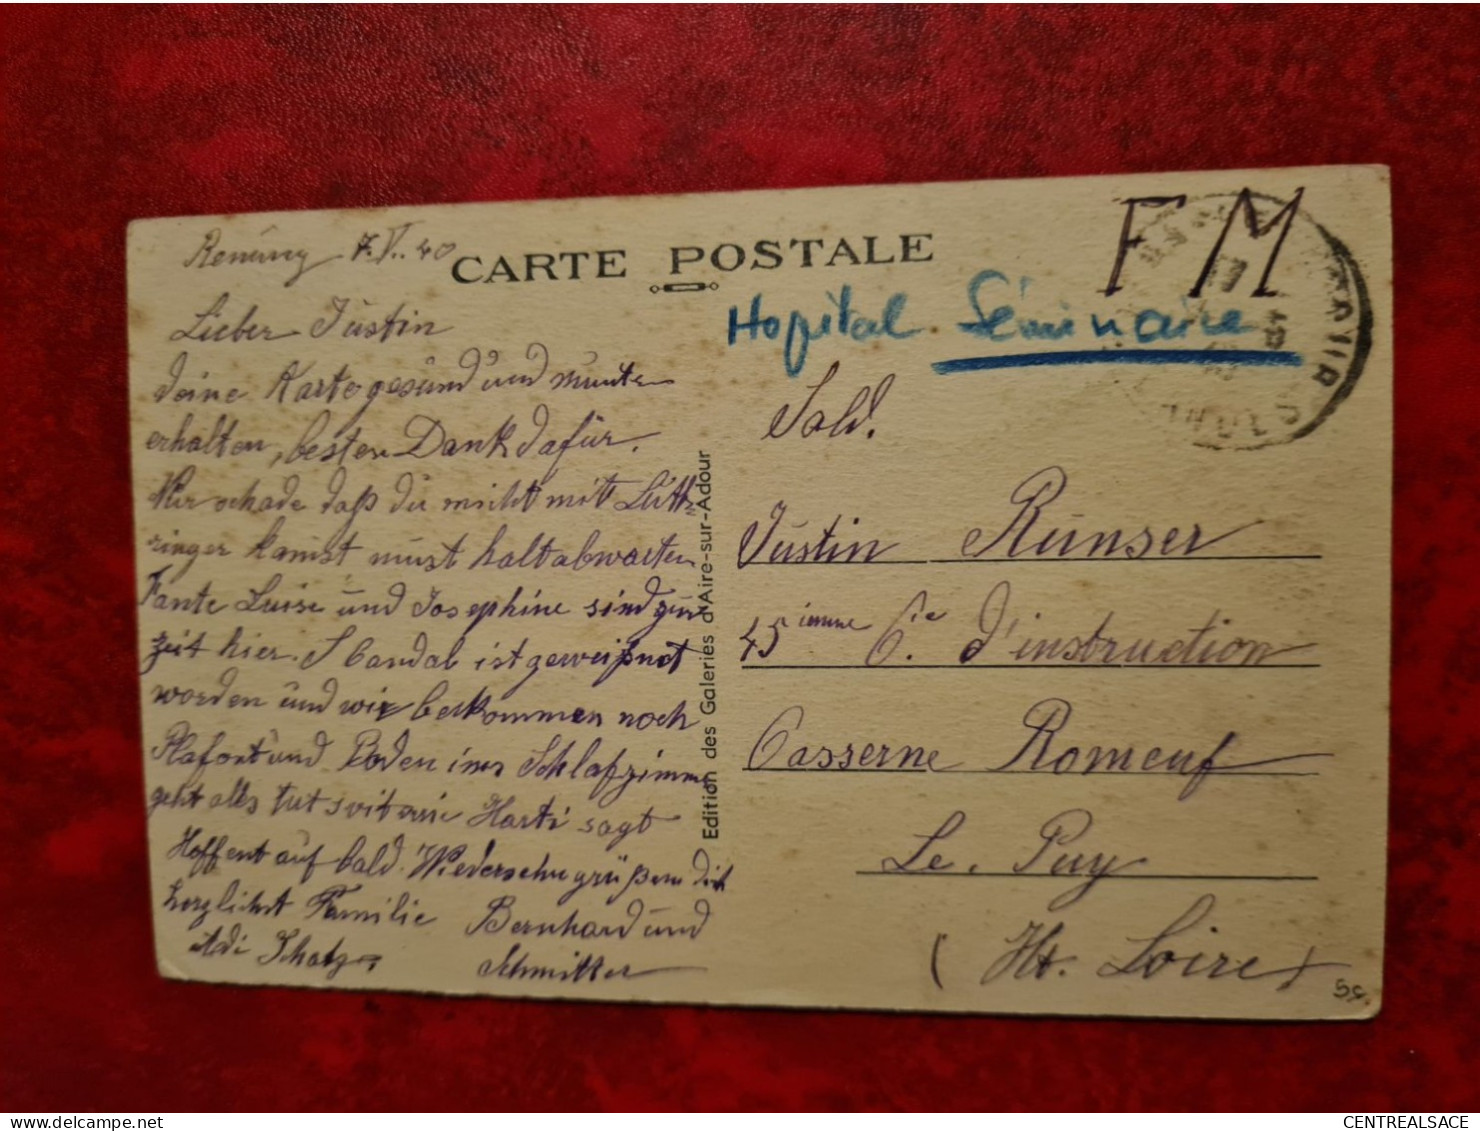 Renung 7.V.40
CARTE POSTALE
F M
Hopital Séminaire
Lieber Justin
deine Karte gesund und munter
erhalten, besten Dank dafür.
Nur schade daß du nicht mit Lütt-
ringer kamst must halt abwarten
Tante Luise und Josephine sind zur
zeit hier. S ist geweißnet
worden und wir bekommen noch
Plafont und Boden ins Schlafzimmer
geht alles Harti sagt
Hoffent auf bald. Wiedersehn grüßen dich
herzlichst Familie Bernhard und
Adi Schatz Schmitter
Edition des Galeries d'Aire-sur-Adour
Sold.
Justin Runser
45ieme Cie d'instruction
Casserne Romeuf
Le. Puy
(Ht. Loire)
CENTREALSACE